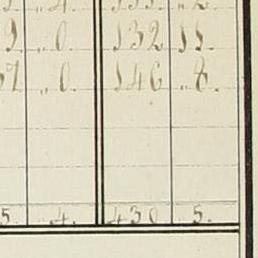 9 „ 0. 132 11.
57 „ 0. 146 „ 8.
5. 4. 430 5.